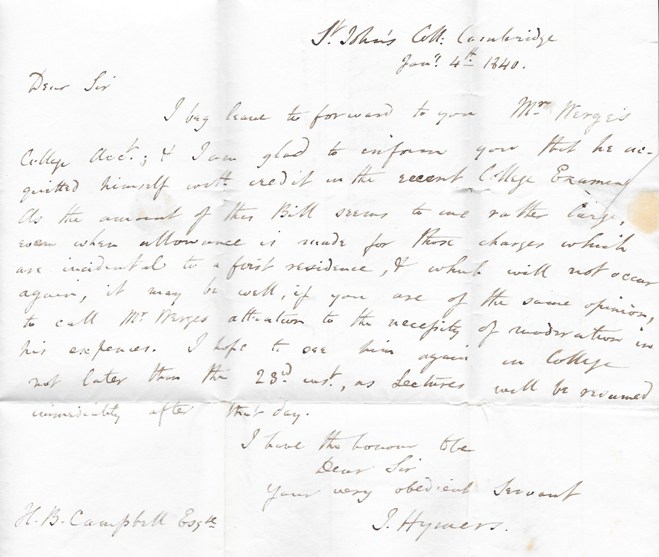 St. John's Coll: Cambridge
Jany. 4th 1840.
Dear Sir
I beg leave to forward to you Mr Werge's
College Acct.; & I am glad to inform you that he ac-
quitted himself with credit in the recent College Examn.
As the amount of this Bill seems to me rather large,
even when allowance is made for those charges which
are incidental to a first residence, & which will not occur
again, it may be well, if you are of the same opinion,
to call Mr. Werges attention to the necessity of moderation in
his expences. I hope to see him again in College
not later than the 23rd inst., as Lectures will be resumed
immediately after that day.
I have the honour to be
Dear Sir
Your very obedient Servant
J. Hymers.
H. B. Campbell Esqre